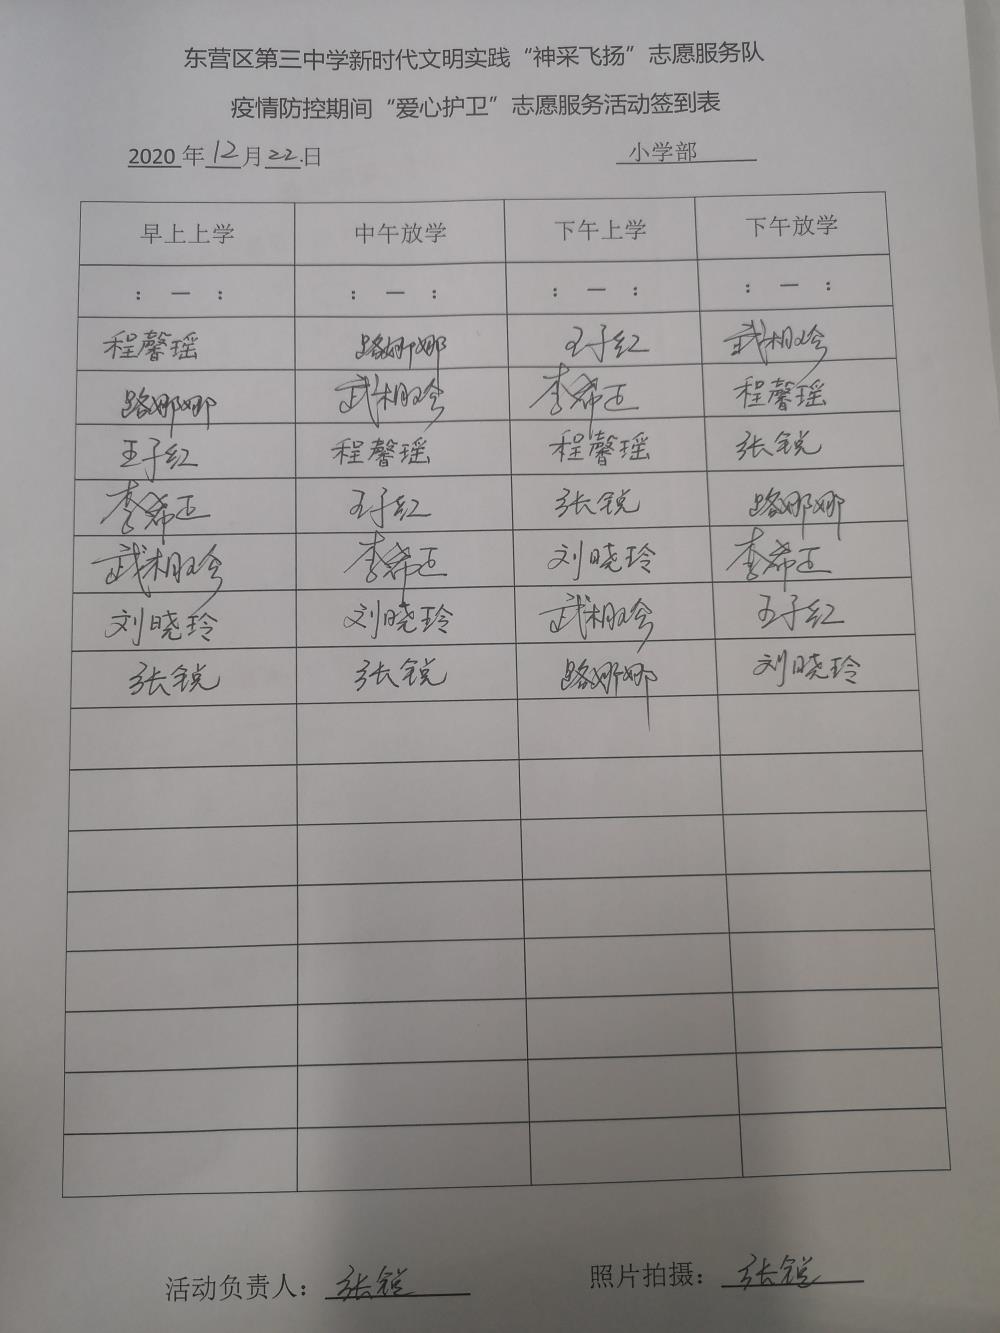 东营区第三中学新时代文明实践“神采飞扬”志愿服务队
疫情防控期间“爱心护卫”志愿服务活动签到表
2020年12月22.日 小学部
早上上学 中午放学 下午上学 下午放学
: — : : — : : — : : — :
程馨瑶 路娜娜 王子红 武相玲
路娜娜 武相玲 李希正 程馨瑶
王子红 程馨瑶 程馨瑶 张锐
李希正 王子红 张锐 路娜娜
武相玲 李希正 刘晓玲 李希正
刘晓玲 刘晓玲 武相玲 王子红
张锐 张锐 路娜娜 刘晓玲
活动负责人：张锐 照片拍摄：张锐